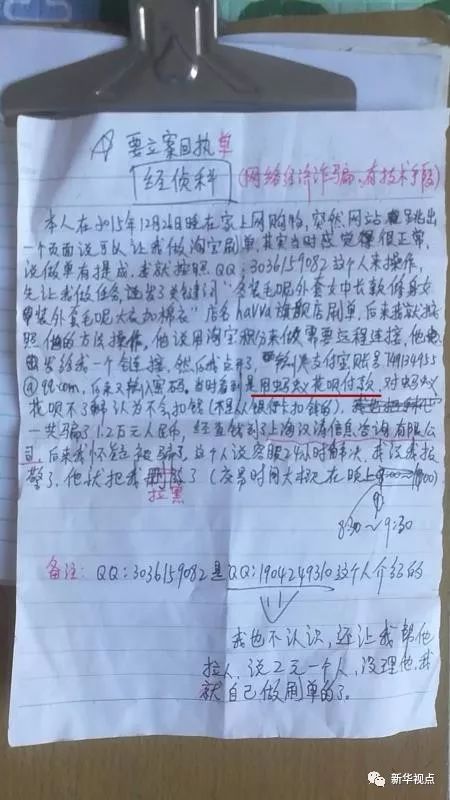 要立案回执单
经侦科
(网络经济诈骗、有技术手段)
本人在2015年12月26日晚在家上网购物,突然网站跳出
一个页面说可以让我做淘宝刷单,其实当时感觉很正常,
说做单有提成,我就按照QQ:3036159082这个人来操作,
先让我做任务,关键词“冬装毛呢外套女中长款修身女
装外套毛呢大衣加棉衣”店名halva旗舰店刷单,后来我就按
照他的方法操作,他说用淘宝积分来做需要远程连接,他
发给我一个链接,然后我点开了,支付宝账号749134955
@qq.com,后来又输入密码,当时看到是用蚂蚁花呗付款,对蚂蚁
花呗不了解认为不会扣钱(不是从银行卡扣钱的),
一共骗了1.2万元人民币,经查钱到了上海汉涛信息咨询有限公
司,后来我怀疑被骗了,这个人说客服2小时解决,我说我报
警了,他就把我删除了(交易时间大概在晚上8:00~9:00)
拉黑
8:30~9:30
备注:QQ:3036159082是QQ:1904249310这个人介绍的
我也不认识,还让我帮他
拉人,说2元一个人,没理他,我
就自己做刷单的了。
新华视点